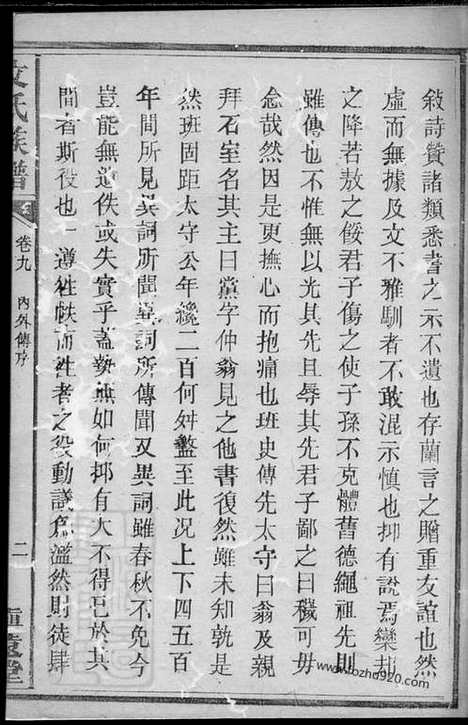 敍詩贊諸類悉書之示不遺也存蘭言之贈重友誼也然
虛而無據及文不雅馴者不敢混示慎也抑有說焉欒郤
之降若敖之餒君子傷之使子孫不克體舊德繩祖先則
雖傳也不惟無以光其先且辱其先君子鄙之曰穢可毋
念哉然因是更撫心而抱痛也班史傳先太守曰翁及親
拜石室名其主曰黨字仲翁見之他書復然雖未知孰是
然班固距太守公年纔二百何舛盭至此况上下四五百
年間所見異詞所聞異詞所傳聞又異詞雖春秋不免今
豈能無遺佚或失實乎蓋勢無如何抑有大不得已於其
間者斯役也一遵牲帙而牲者之役動議爲濫然則徒肆
文氏族譜
卷九
內外傳序
二
堂
www.tozho920.com